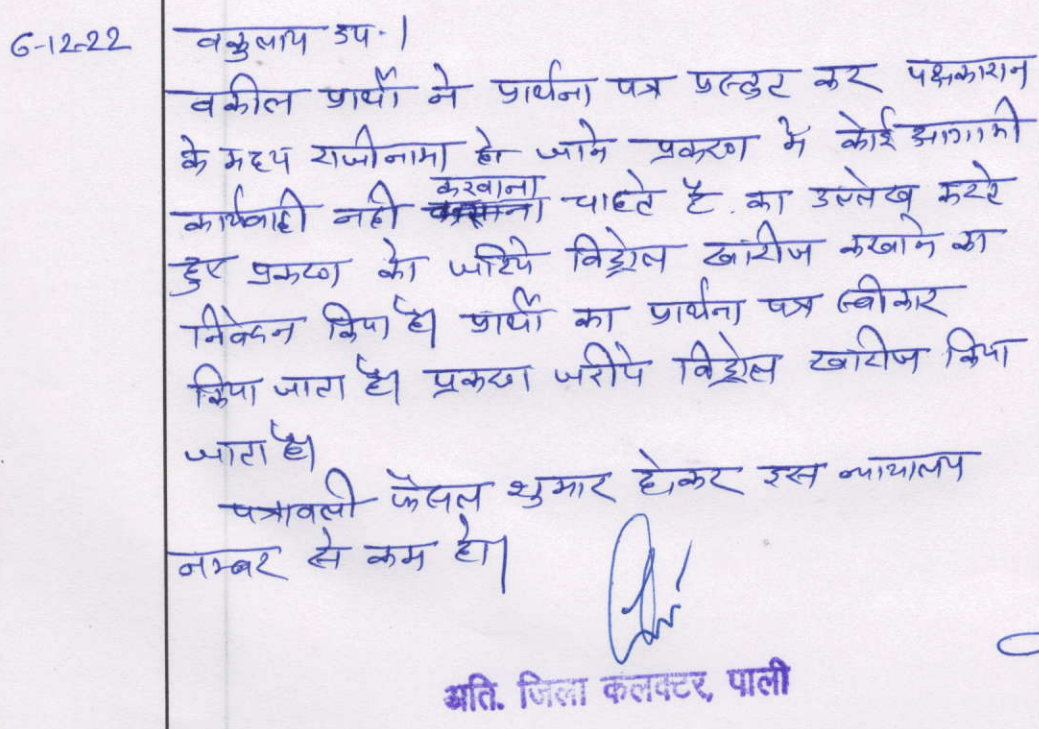 6-12-22 वकुलाय उप.।
वकील प्रार्थी ने प्रार्थना पत्र प्रस्तुत कर पक्षकारान
के मध्य राजीनामा हो जाने प्रकरण में कोई आगामी
कार्यवाही नही करवाना चाहते है. का उल्लेख करते
हुए प्रकरण को जरिये विड्रोल खारीज करवाने का
निवेदन किया है। प्रार्थी का प्रार्थना पत्र स्वीकार
किया जाता है। प्रकरण जरीये विड्रोल खारीज किया
जाता है।
पत्रावली फैसल शुमार होकर इस न्यायालय
नम्बर से कम हो।
अति. जिला कलक्टर, पाली